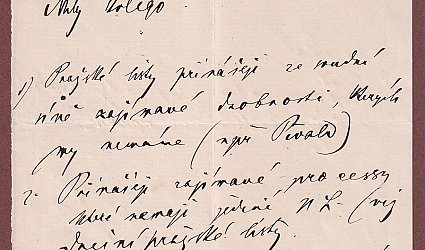 Milý kolego.
1) Pražské listy přinášejí ze soudní
síně zajímavé drobnosti, kterých
my nemáme (např Pivoda)
2. Přinášejí zajímavé processy
které nemají jediné N. L. (viz
dnešní pražské listy.